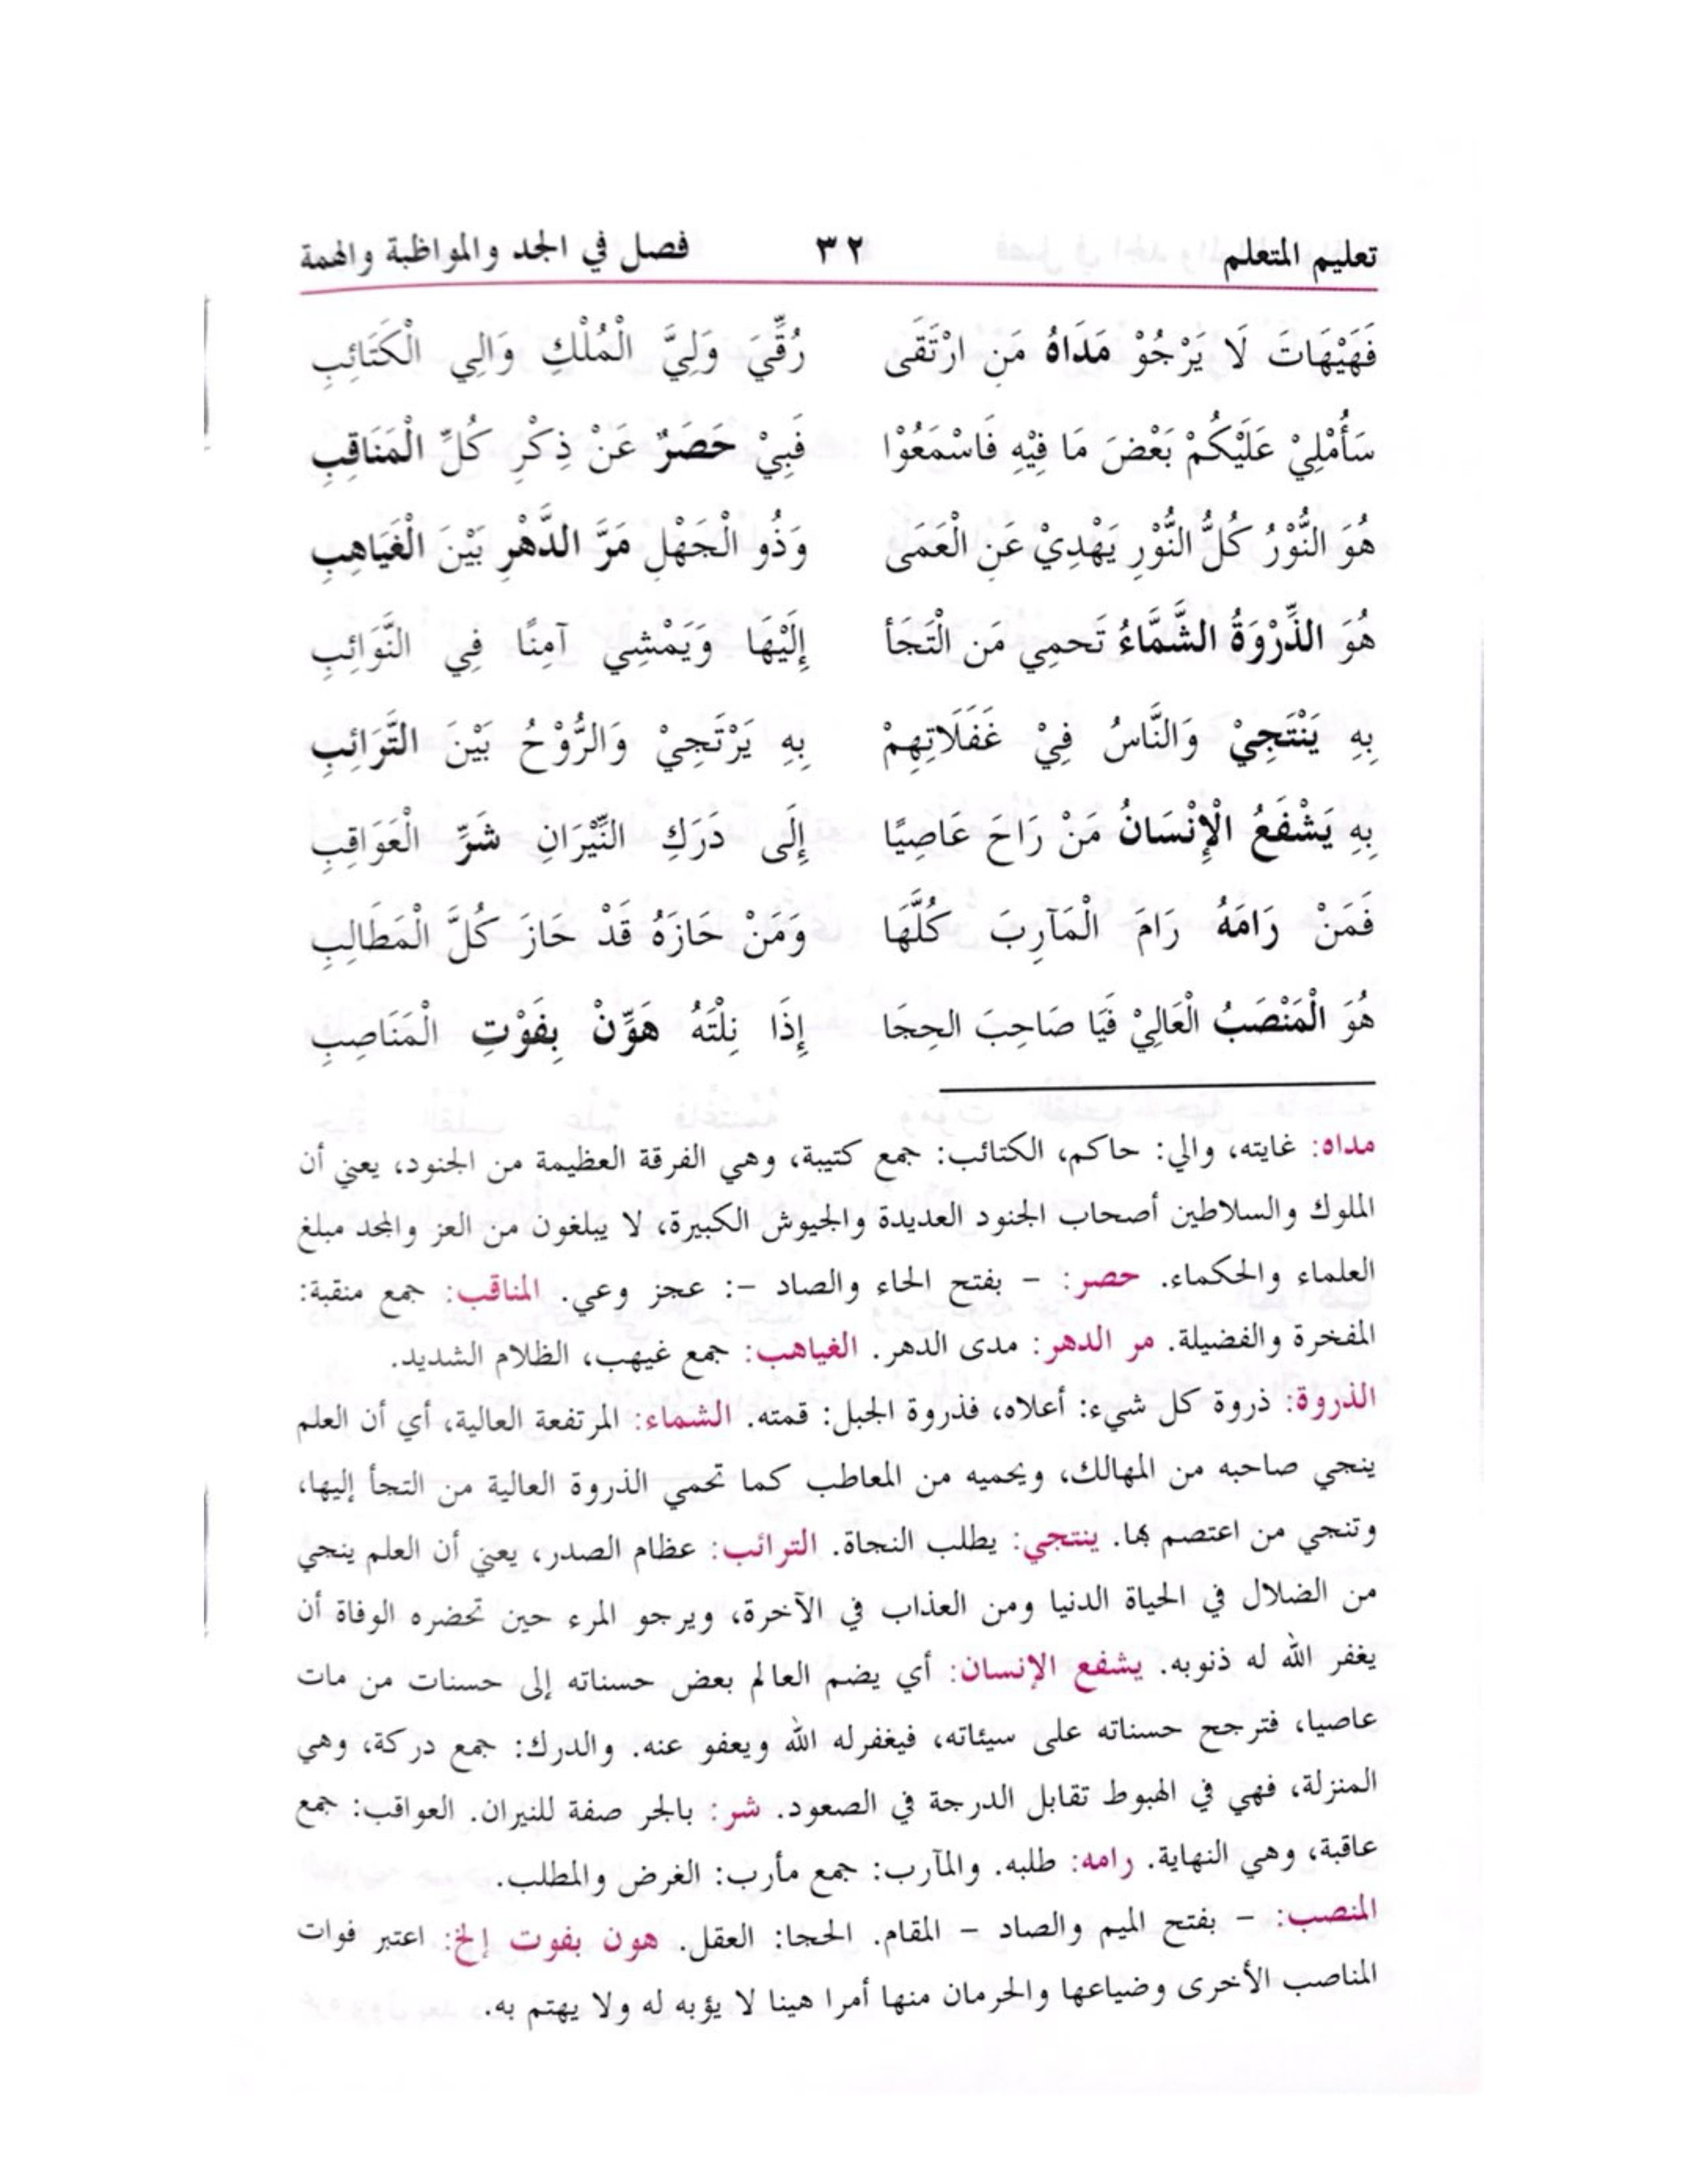 تعليم المتعلم ٣٢ فصل في الجد والمواظبة والهمة
فَهَيْهَاتَ لَا يَرْجُوْ مَدَاهُ مَن ارْتَقَى رُقِّيَ وَلِيَّ الْمُلْكِ وَالِي الْكَتَائِبِ
سَأُمْلِيْ عَلَيْكُمْ بَعْضَ مَا فِيْهِ فَاسْمَعُوْا فَبِيْ حَصَرٌ عَنْ ذِكْرِ كُلِّ الْمَنَاقِبِ
هُوَ النُّوْرُ كُلُّ النُّوْرِ يَهْدِيْ عَنِ الْعَمَى وَذُو الْجَهْلِ مَرَّ الدَّهْرِ بَيْنَ الْغَيَاهِبِ
هُوَ الذِّرْوَةُ الشَّمَّاءُ تَحمِي مَن الْتَجَأ إِلَيْهَا وَيَمْشِي آمِنًا فِي النَّوَائِبِ
بِهِ يَنْتَجِيْ وَالنَّاسُ فِيْ غَفَلَاتِهِمْ بِهِ يَرْتَجِيْ وَالرُّوْحُ بَيْنَ التَّرَائِبِ
بِهِ يَشْفَعُ الْإِنْسَانُ مَنْ رَاحَ عَاصِيًا إِلَى دَرَكِ النِّيْرَانِ شَرِّ الْعَوَاقِبِ
فَمَنْ رَامَهُ رَامَ الْمَآرِبَ كُلَّهَا وَمَنْ حَازَهُ قَدْ حَازَ كُلَّ الْمَطَالِبِ
هُوَ الْمَنْصَبُ الْعَالِيْ فَيَا صَاحِبَ الحِجَا إِذَا نِلْتَهُ هَوِّنْ بِفَوْتِ الْمَنَاصِبِ
مداه: غايته، والي: حاكم، الكتائب: جمع كتيبة، وهي الفرقة العظيمة من الجنود، يعني أن
الملوك والسلاطين أصحاب الجنود العديدة والجيوش الكبيرة، لا يبلغون من العز والمجد مبلغ
العلماء والحكماء. حصر: – بفتح الحاء والصاد –: عجز وعي. المناقب: جمع منقبة:
المفخرة والفضيلة. مر الدهر: مدى الدهر. الغياهب: جمع غيهب، الظلام الشديد.
الذروة: ذروة كل شيء: أعلاه، فذروة الجبل: قمته. الشماء: المرتفعة العالية، أي أن العلم
ينجي صاحبه من المهالك، ويحميه من المعاطب كما تحمي الذروة العالية من التجأ إليها،
وتنجي من اعتصم بها. ينتجي: يطلب النجاة. الترائب: عظام الصدر، يعني أن العلم ينجي
من الضلال في الحياة الدنيا ومن العذاب في الآخرة، ويرجو المرء حين تحضره الوفاة أن
يغفر الله له ذنوبه. يشفع الإنسان: أي يضم العالم بعض حسناته إلى حسنات من مات
عاصيا، فترجح حسناته على سيئاته، فيغفرله الله ويعفو عنه. والدرك: جمع دركة، وهي
المنزلة، فهي في الهبوط تقابل الدرجة في الصعود. شر: بالجر صفة للنيران. العواقب: جمع
عاقبة، وهي النهاية. رامه: طلبه. والمآرب: جمع مأرب: الغرض والمطلب.
المنصب: – بفتح الميم والصاد – المقام. الحجا: العقل. هون بفوت إلخ: اعتبر فوات
المناصب الأخرى وضياعها والحرمان منها أمرا هينا لا يؤبه له ولا يهتم به.